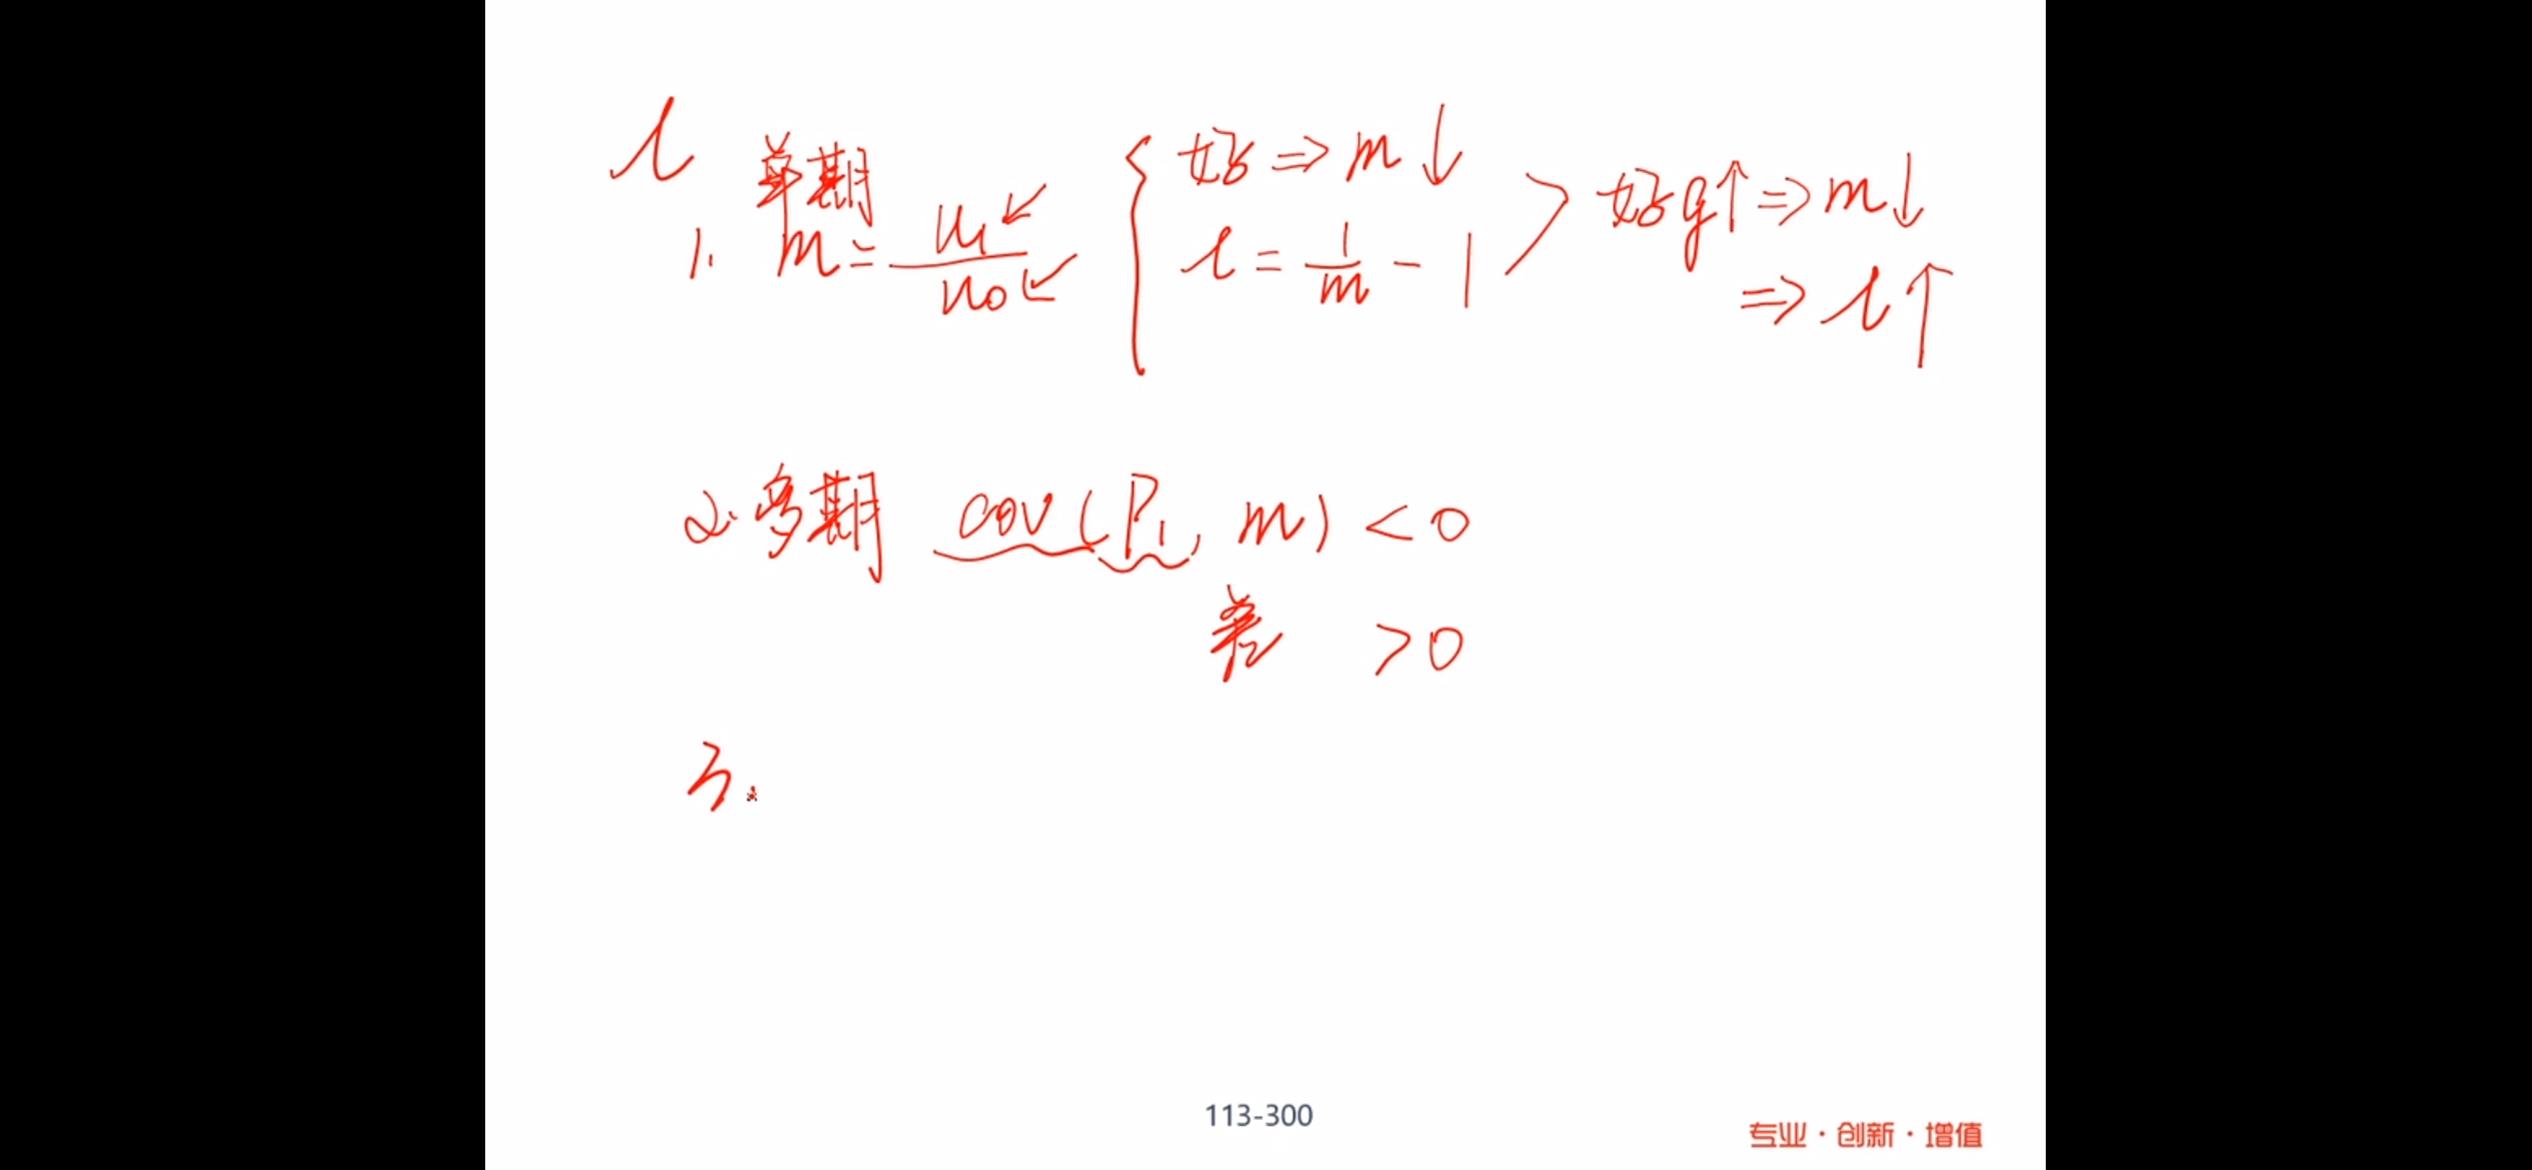 l
单期
1. m = u₁/u₀ { 好 ⇒ m ↓
l = 1/m - 1
好 g↑ ⇒ m ↓
⇒ l ↑
2. 多期 cov(P₁, m) < 0
差 > 0
3.
113-300
专业·创新·增值